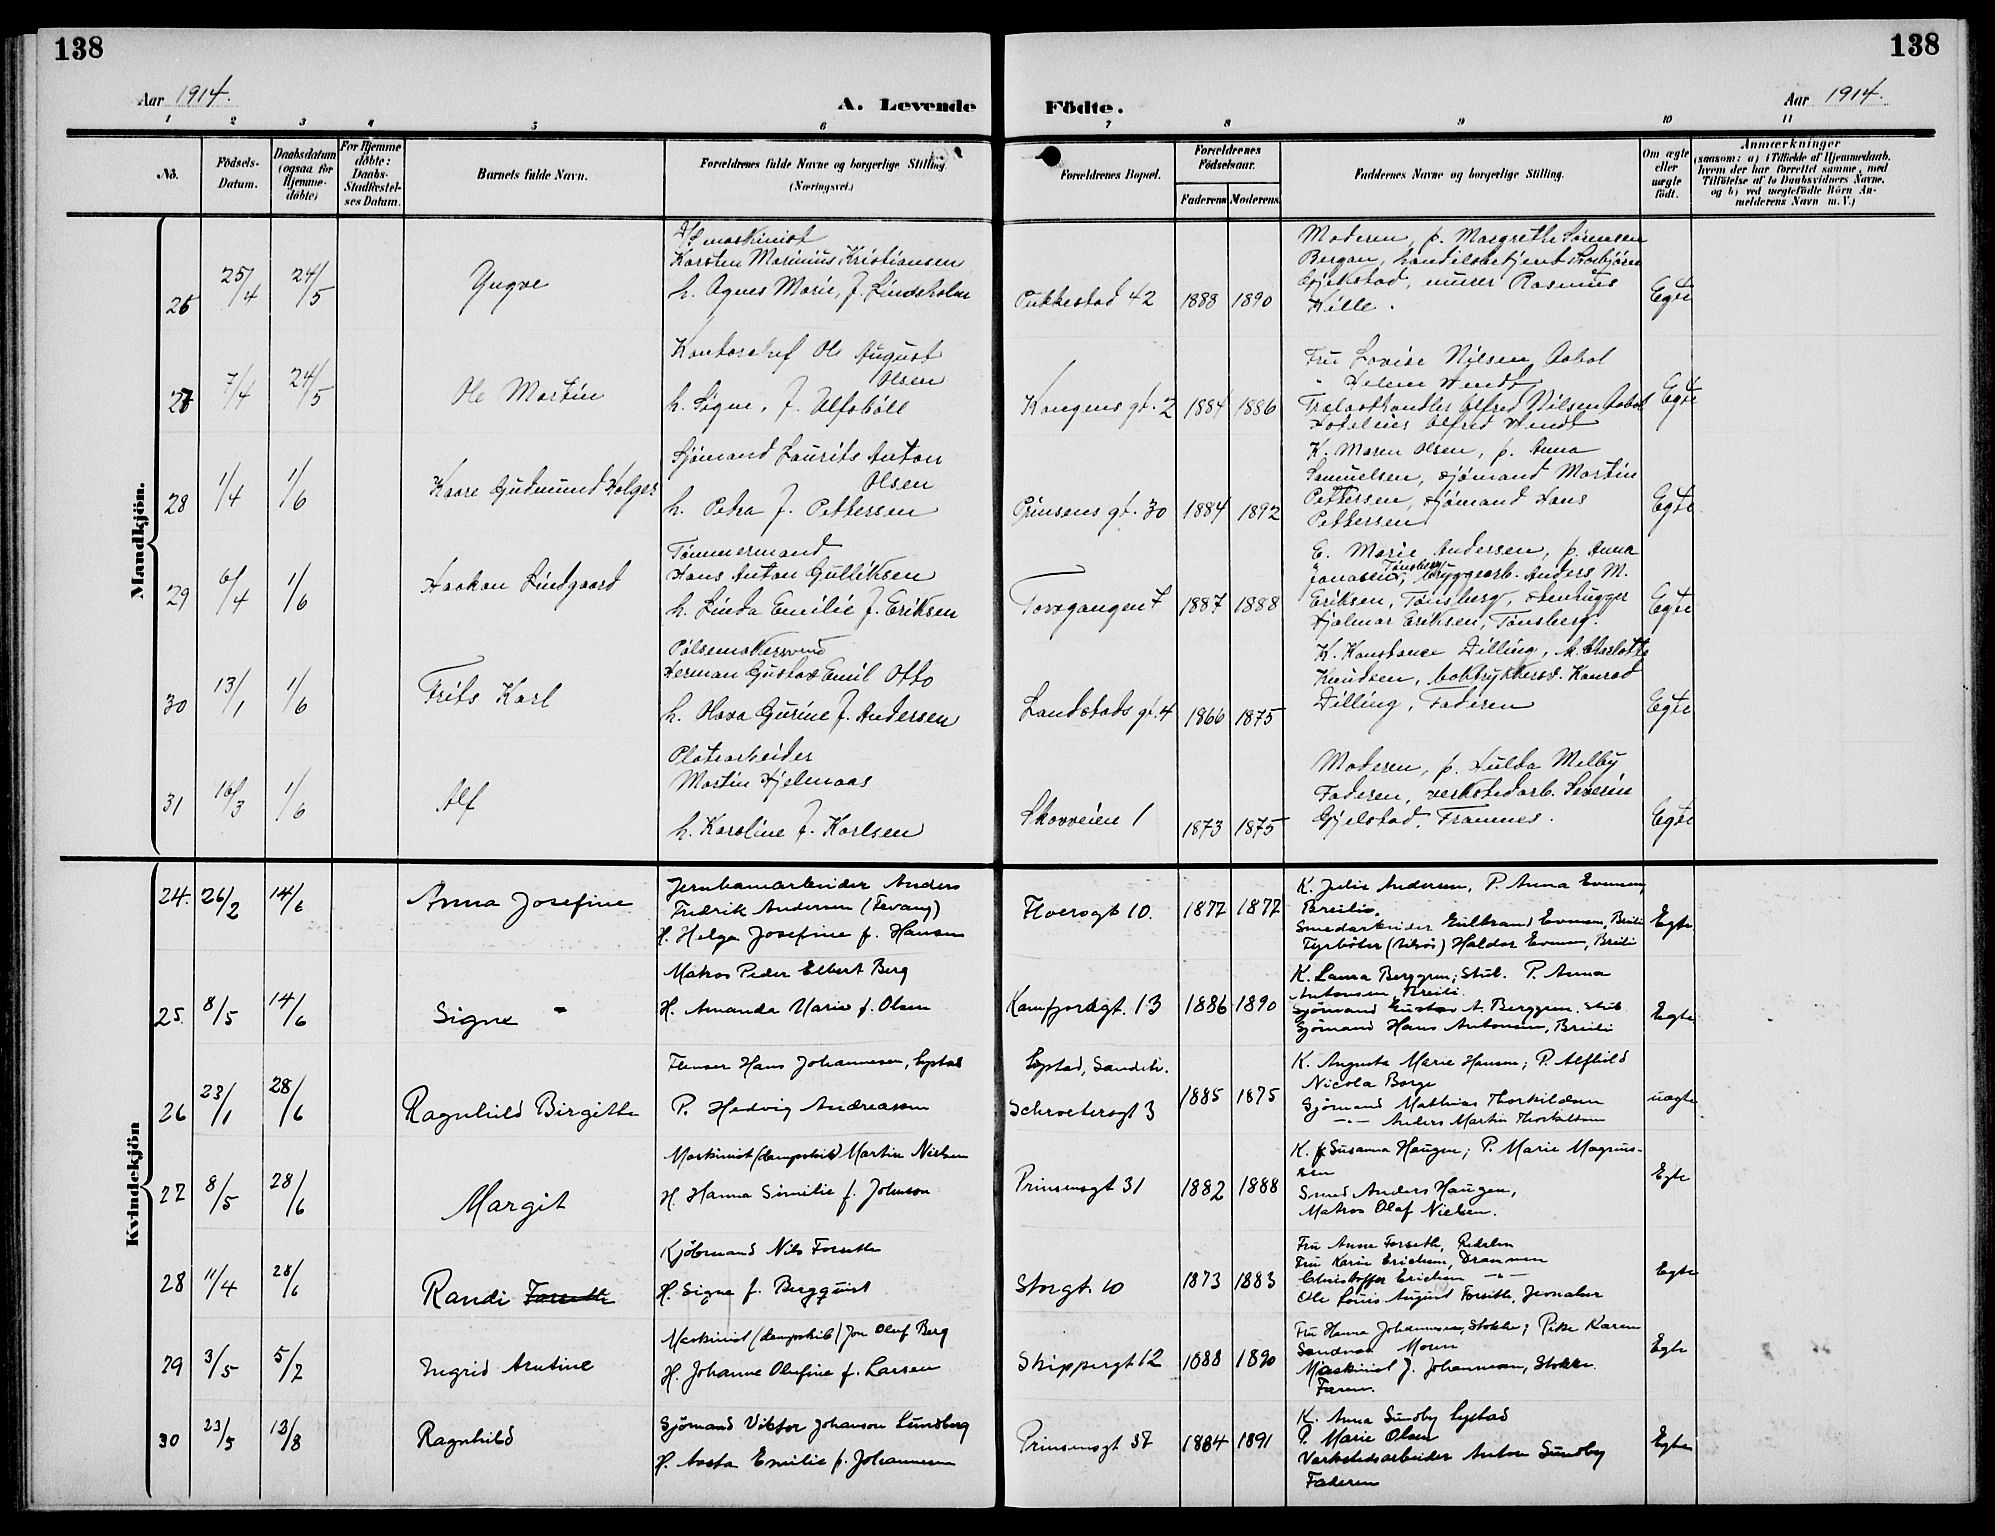 138
138
Aar 1914.
A. Levende
Födte.
Aar 1914.
1 2 3 4 5 6 7 8 9 10 11
No.
Födsels-Datum.
Daabsdatum (ogsaa for Hjemmedöbte)
For Hjemmedöbte: Daabs-Stadfæstelses Datum.
Barnets fulde Navn.
Forældrenes fulde Navne og borgerlige Stilling.
(Næringsvei.)
Forældrenes Bopæl.
Forældrenes Födselsaar.
Faderens Moderens
Faddernes Navne og borgerlige Stilling.
Om ægte eller uægte födt.
Anmærkninger
(saasom: a) i Tilfælde af Hjemmedaab, hvem der har forrettet samme, med Tilföielse af to Daabsvidners Navne, og b) ved uægtefödte Börn Anmelderens Navn m. V.)
Mandkjön.
26 25/4 24/5 Yngve
maskinist
Karsten Marinius Kristiansen
h. Agnes Marie, f. Lindholm
Pukkestad 42 1888 1890
Moderen, p. Margrethe Sørensen
Bergan, handelsbetjent Thorbjörn
Gjekstad, murer Rasmus
Kille.
Egte
27 7/4 24/5 Ole Martin
Kontorchef Ole August
Olsen
h. Signe, f. Ulfsböll
Kongens gt. 2 1884 1886
Fru Lovise Nilsen Aabol
" Helene Wendt
Trælasthandler Alfred Nilsen Aabol
Hoteleier Alfred Wendt
Egte
28 1/4 1/6 Kaare Gudmund Holger
Sjömand Laurits Anton
Olsen
h. Petra f. Pettersen
Prinsens gt. 30 1884 1892
K. Maren Olsen, p. Anna
Samuelsen, sjömand Martin
Pettersen, sjömand Hans
Pettersen
Egte
29 6/4 1/6 Haakon Lindgaard
Tömmermand
Hans Anton Gulliksen
h. Linda Emilie f. Eriksen
Torvgangen 7 1887 1888
E. Marie Andersen, p. Anna
Jonassen, Tönsberg, bryggearb. Anders M.
Eriksen, Tönsberg, stenhugger
Hjalmar Eriksen, Tönsberg.
Egte
30 13/1 1/6 Frits Karl
Pölsemakersvend
Herman Gustav Emil Otto
h. Olava Gurine f. Andersen
Landstads gt. 4 1866 1875
K. Konstance Dilling, k. Charlotte
Knudsen, boktrykkersv. Konrad
Dilling, Faderen
Egte
31 16/3 1/6 Alf
Platearbeider
Martin Hjelmaas
h. Karoline f. Karlsen
Skovveien 1 1873 1875
Moderen, p. Hulda Melby
Faderen, verkstedarb. Severin
Gjelstad, Framnes.
Egte
Kvindekjön
24. 26/2 14/6 Anna Josefine
Jernbanearbeider Anders
Fredrik Andersen (Fevang)
H. Helga Josefine f. Hansen
Floersgt 10. 1877 1877
K. Julie Andersen, P. Anna Evensen,
Breili,
Smedarbeider Gulbrand Evensen, Breili
Fyrböter (tilsjös) Haldor Evensen, Breili
Egte
25. 8/5 14/6 Signe -
Matros Peder Elbert Berg
H. Amanda Marie f. Olsen
Kamfjordgt. 13 1886 1890
K. Laura Berggren, Stub. P. Anna
Antonsen, Breili.
Sjömand Gustav A. Berggren, Stub
Sjömand Hans Antonsen, Breili
Egte
26 23/1 28/6 Ragnhild Birgitte
Flenser Hans Johannesen, Lystad
P. Hedvig Andreassen
Lystad, Sandeh.
Schrøtersgt 3 1885 1875
K. Augusta Marie Hansen; P. Alfhild
Nicola Borge
Sjömand Mathias Thorkildsen
—"— Anders Martin Thorkildsen
uægte
27 8/5 28/6 Margit
Maskinist (dampskib) Martin Nielsen
H. Hanna Similie f. Johnson
Prinsensgt 31 1882 1888
K. f Susanna Haugen; P. Marie Magnus-
sen
Smed Anders Haugen,
Matros Olaf Nielsen.
Egte
28 11/4 28/6 Randi Forseth
Kjöbmand Nils Forseth
H. Signe f. Bergquist
Storgt. 10 1873 1883
Fru Anne Forseth, Redalen
Fru Karin Erichsen, Drammen
Christoffer Erichsen —"—
Ole Louis August Forseth, Jevnaker
Egte
29 3/5 5/7 Ingrid Arntine
Maskinist (dampskib) Jon Oluf Berg
H. Johanne Olufine f. Larsen
Skippergt 12 1888 1890
Fru Hanna Johannesen, Stokke; Pike Karen
Sandnes Moren
Maskinist J. Johannesen, Stokke.
Faren.
Egte
30 23/5 13/8 Ragnhild
Sjömand Viktor Johanson Lundberg
H. Aasta Emilie f. Johannesen
Prinsensgt 37 1884 1891
K. Anna Sundby Lystad
P. Marie Olsen
Verkstedsarbeider Anton Sundby
Faderen
Egte